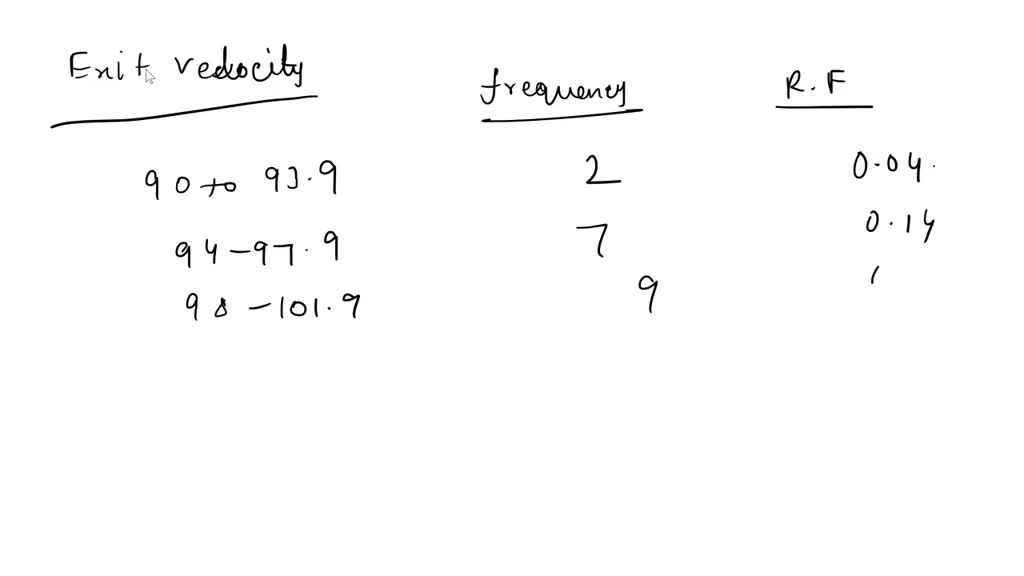 Exit velocity frequency R.F
90 to 93.9 2 0.04.
94-97.9 7 0.14
98-101.9 9